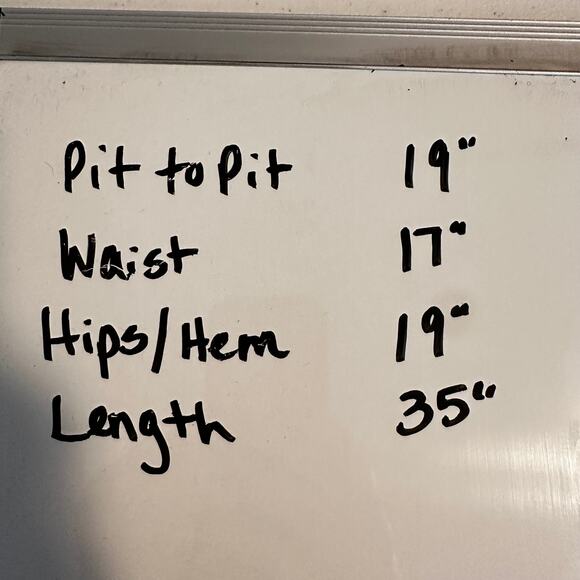 Pit to Pit 19"
Waist 17"
Hips/Hem 19"
Length 35"